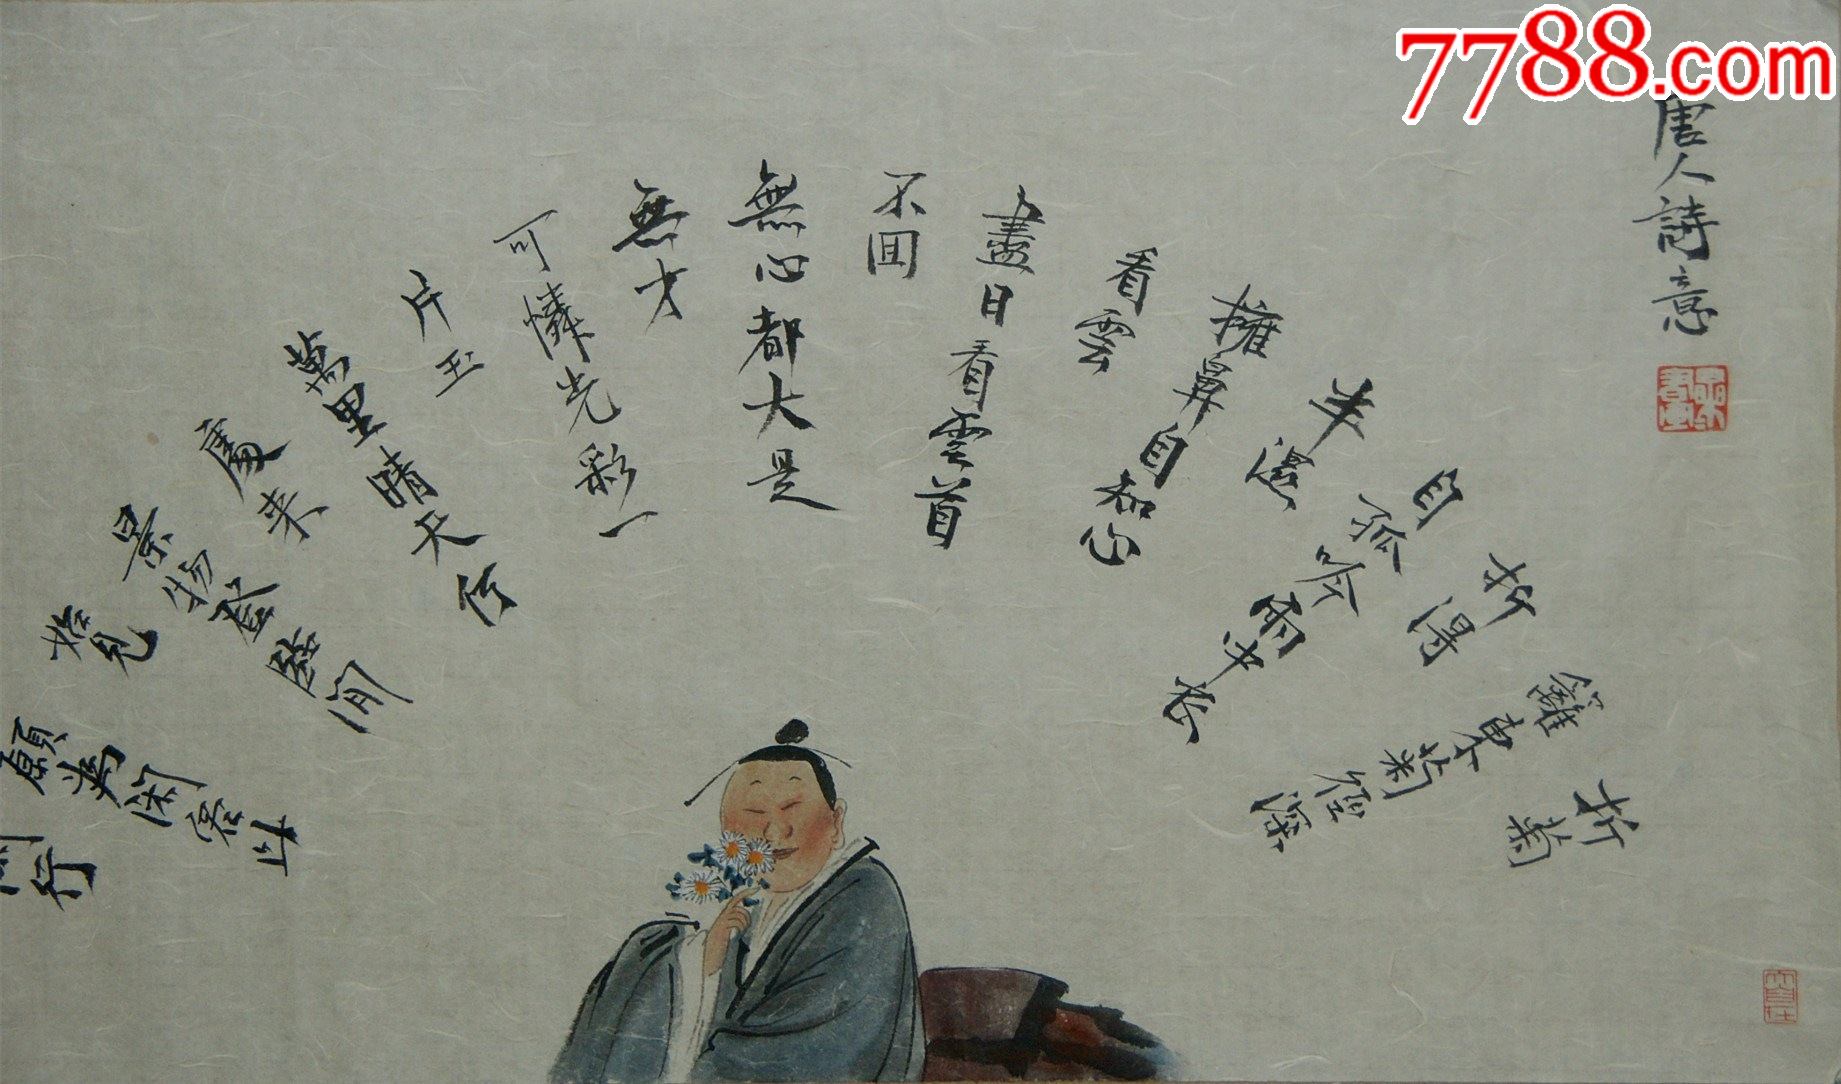 唐人詩意
折菊
籬東菊徑深
折得
自孤吟雨中衣
半濕
擁鼻自知心
看雲
盡日看雲首
不囘
無心都大是
無才
可憐光彩一
片玉
萬里晴天何
處来
景物登臨閒
始見
願為閑客此
閒行
7788.com